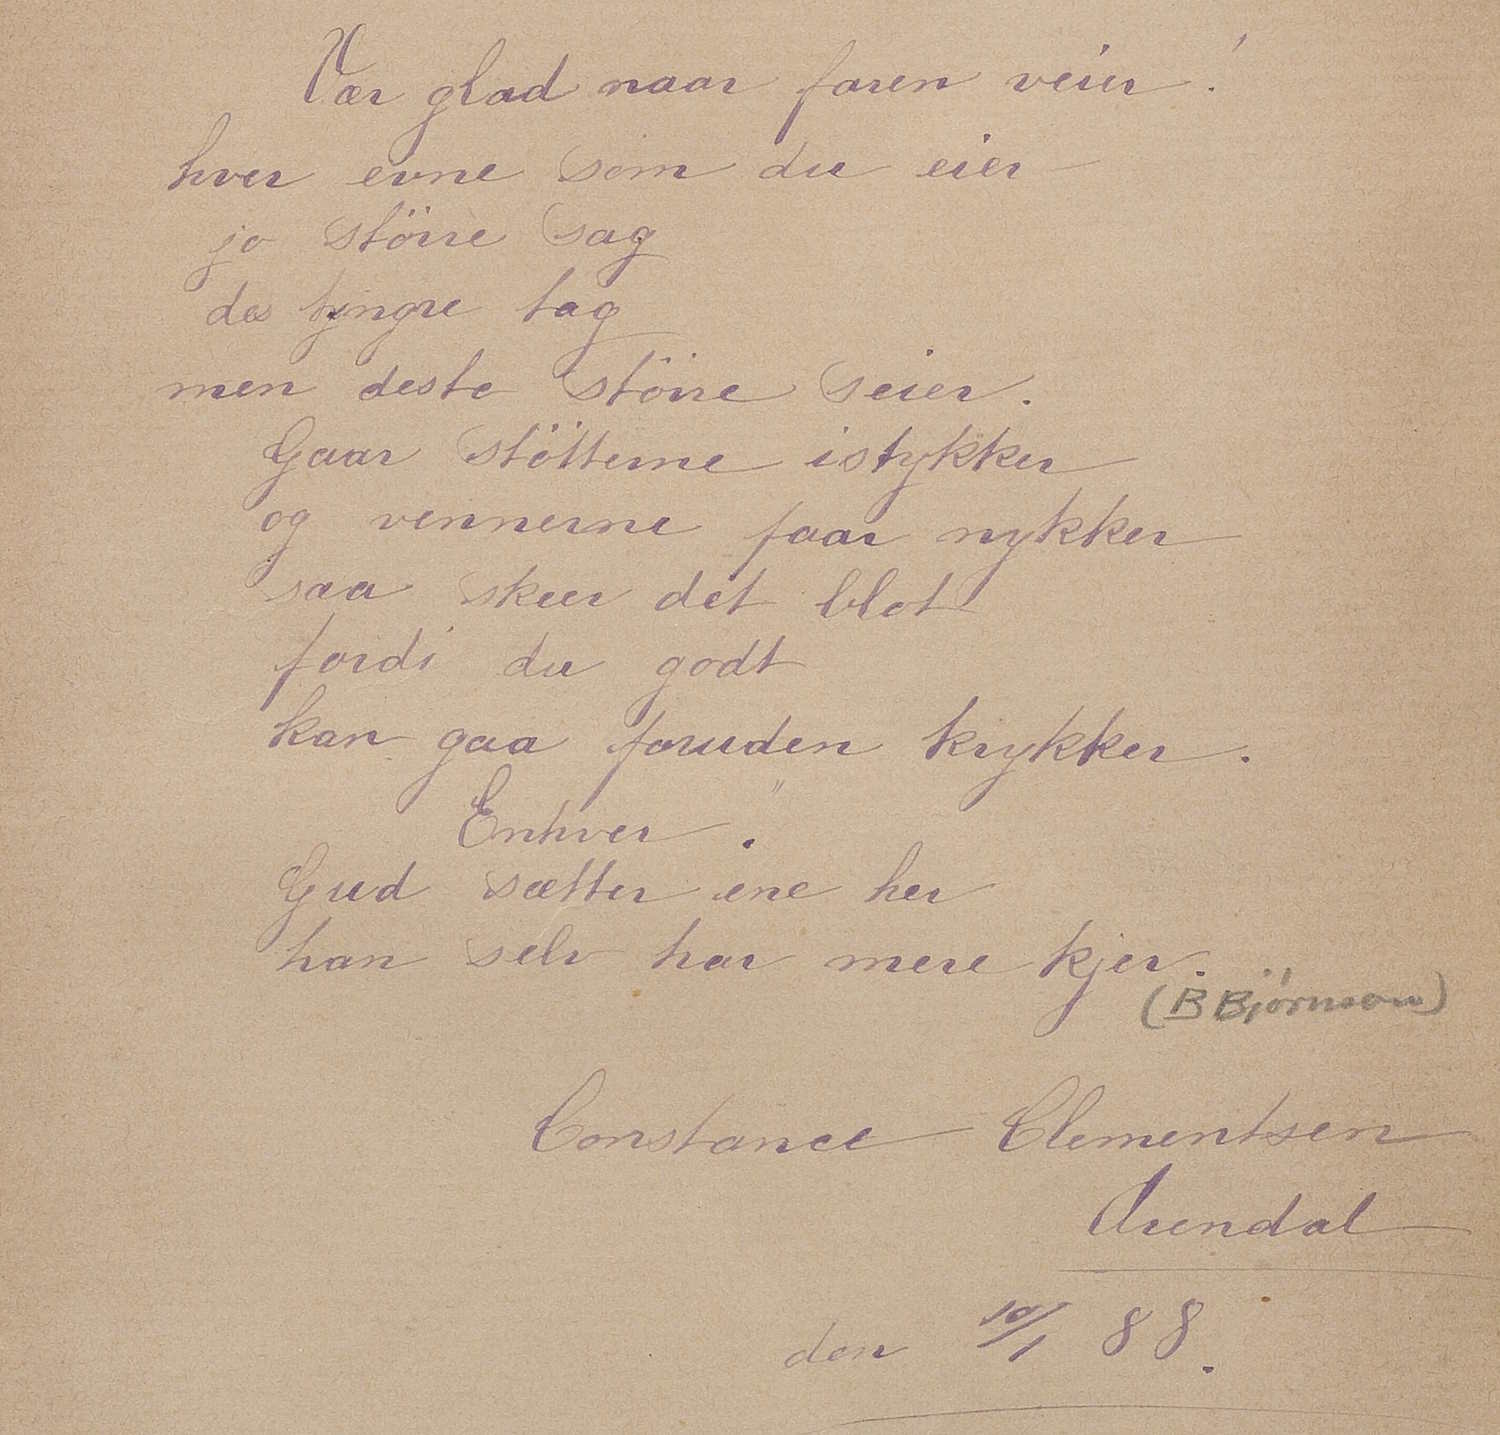 Vær glad naar faren veier!
hver evne som du eier
jo större sag
des tyngre tag
men desto större seier.
Gaar stötterne istykker
og vennerne faar nykker
saa skeer det blot
fordi du godt
kan gaa foruden krykker.
Enhver "
Gud sætter ene her
han selv har mere kjer.
(B Bjørnson)
Constance Clementsen
Arendal
den 10/1 88.